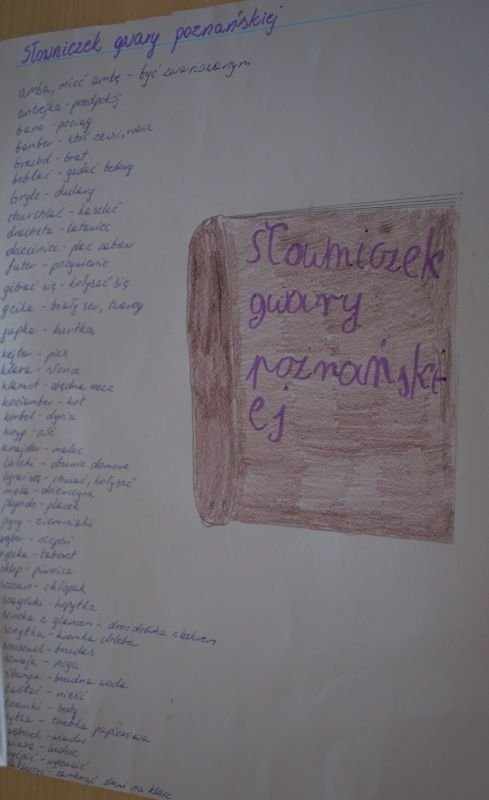 Słowniczek gwary poznańskiej
amba, mieć ambę - być zwariowanym
antrejka - przedpokój
bana - pociąg
bamber - ktoś ze wsi, rolnik
brachol - brat
beblać - gadać bzdury
bryle - okulary
churchlać - kaszleć
dracheta - latawiec
dzieciniec - plac zabaw
futer - pożywienie
gibać się - kołysać się
gzika - biały ser, twaróg
jupka - kurtka
kejter - pies
klara - słońce
klamot - zbędna rzecz
kociamber - kot
korbol - dynia
knyp - nóż
knajder - malec
laczki - obuwie domowe
chwiać, kołysać
mela - dziewczyna
plyndz - placek
pyry - ziemniaki
ryczka - taboret
sklep - piwnica
szczun - chłopak
szagówki - kopytka
szneka z glancem - drożdżówka z lukrem
sznytka - kromka chleba
szuszwol - brudas
szwaja - noga
ślumpa - brudna woda
taszać - nieść
trzewiki - buty
tytka - torebka papierowa
węborek - wiadro
wiara - ludzie
- zamknąć drzwi na klucz
Słowniczek
gwary
poznański-
ej